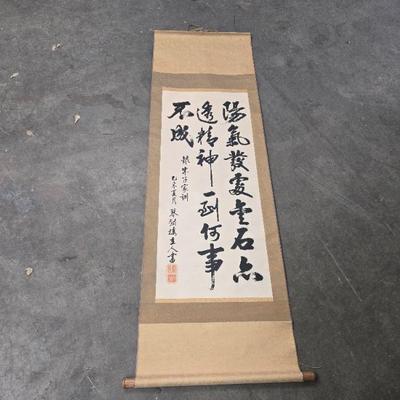 陽氣發處金石亦
透精神一到何事
不成
錄朱子家訓
未夏月 主人書